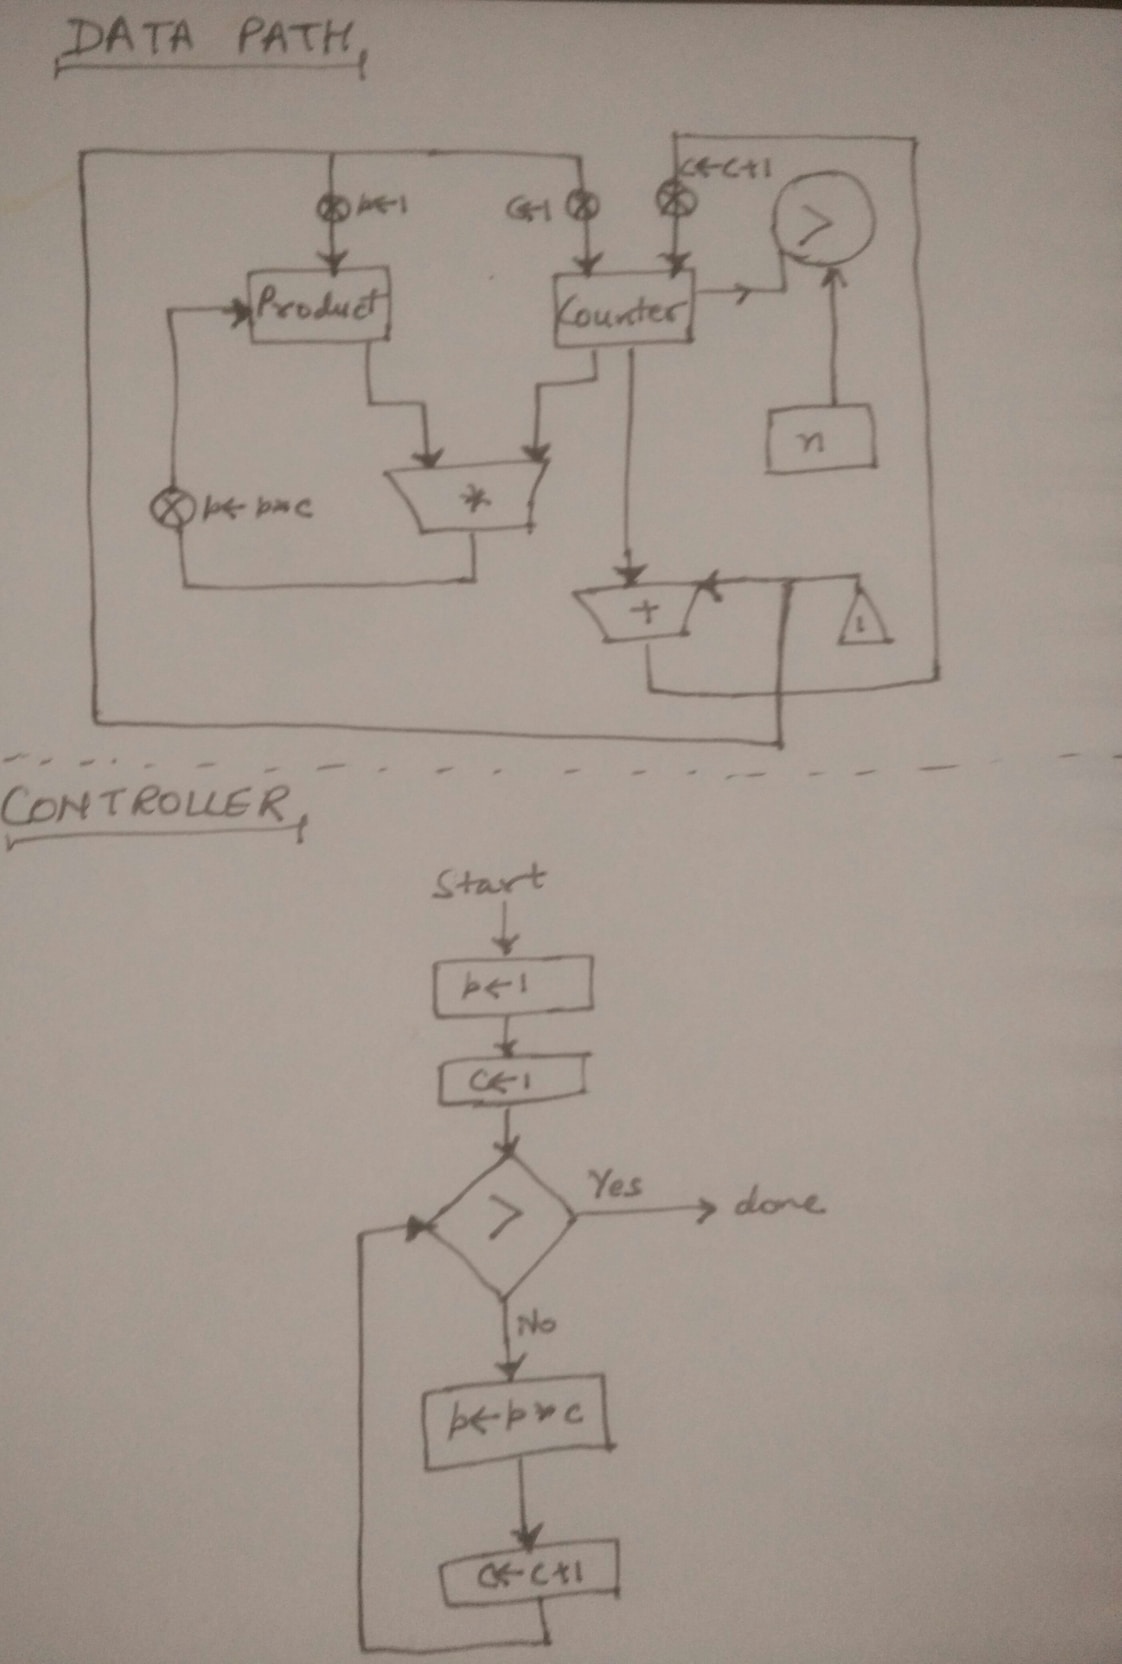 DATA PATH
p←1
c←1
c←c+1
>
Product
Counter
n
*
p← p*c
+
1
CONTROLLER
Start
p←1
c←1
>
Yes
done
No
p←p*c
c←c+1